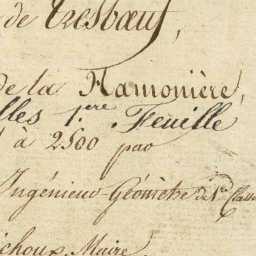 de Tresbœuf,
de la Hamonière,
lles 1.ère Feuille
à 2500 par
Ingénieur-Géomètre de 1.re Classe
ichoux, Maire.